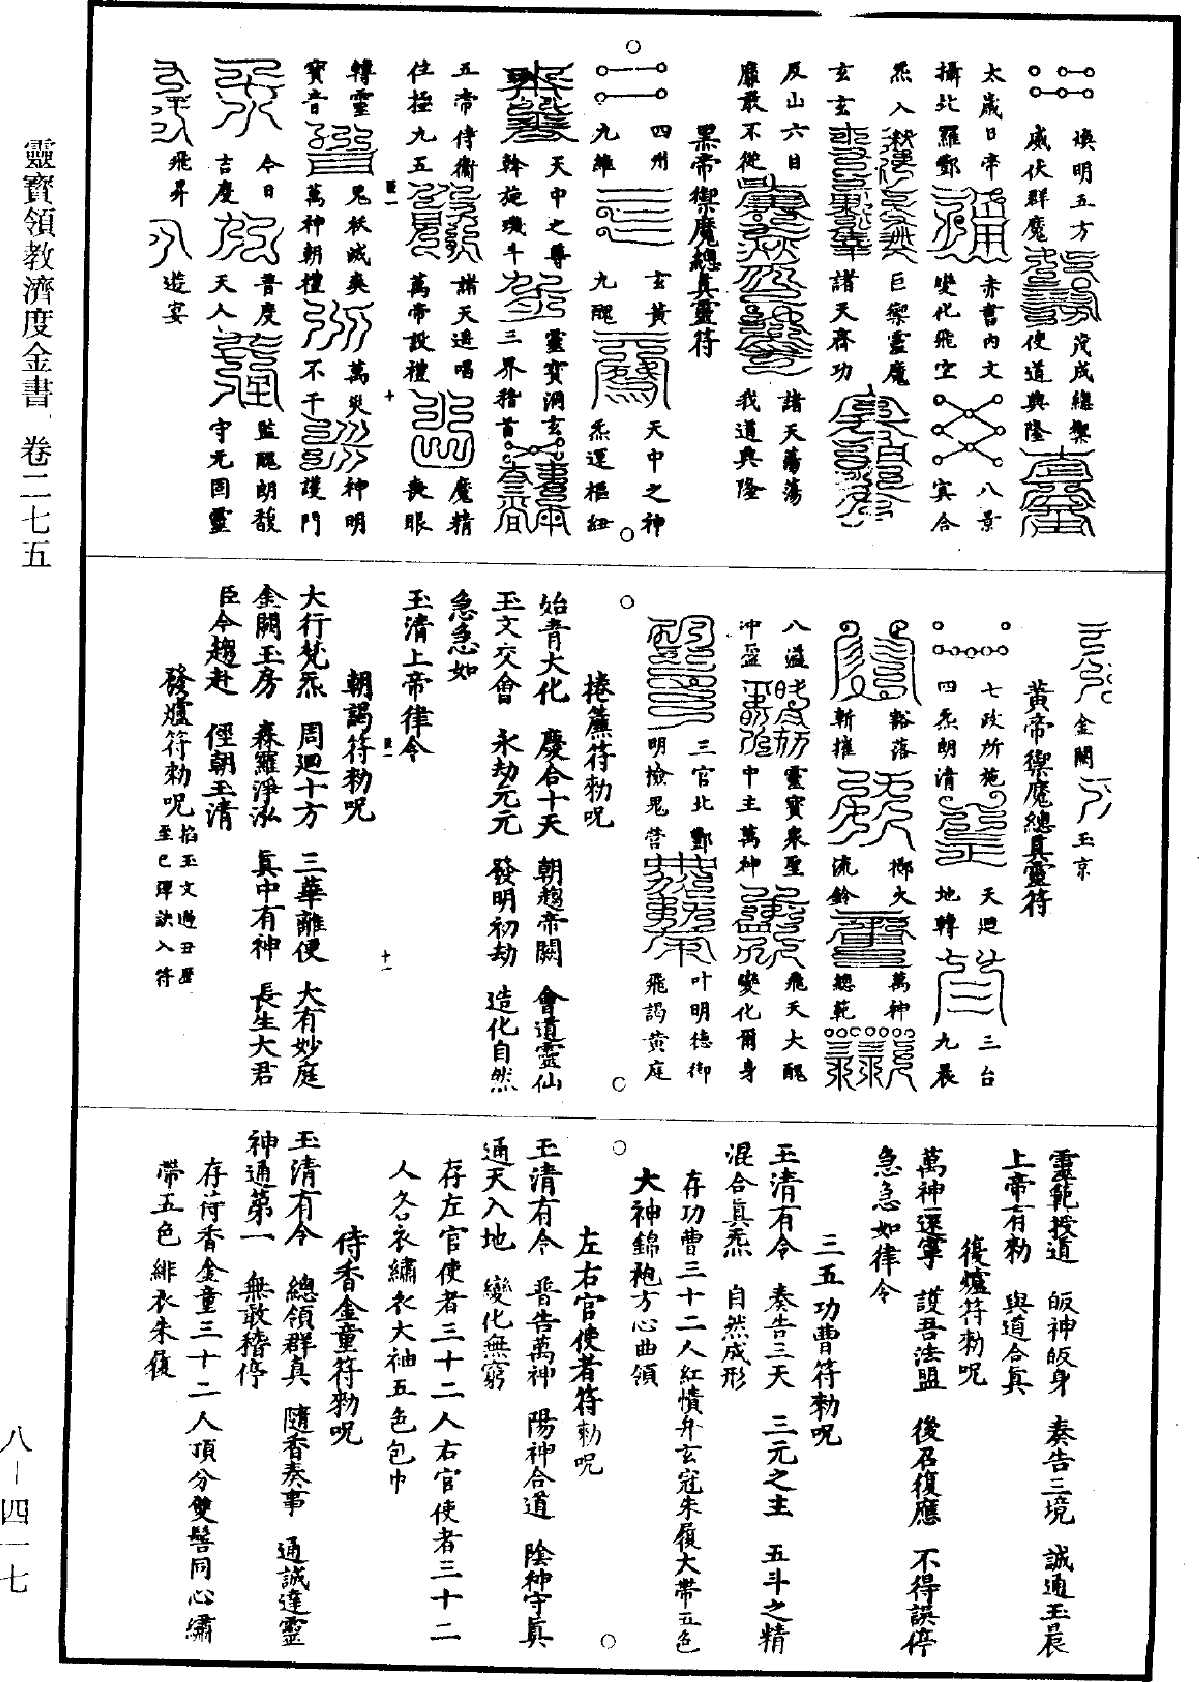 靈寶領教濟度金書 卷二七五
八－四一七
煥明五方 茂成總禦
威伏群魔 使道興隆
太歲日帝 赤書內文 八景
攝北羅酆 變化飛空 寅合
炁入 巨禦靈魔
玄玄 諸天齊功
反山六目 諸天蕩蕩
靡敢不從 我道興隆
黑帝禦魔總真靈符
四州 玄黃 天中之神
九維 九醜 炁運樞紐
天中之尊 靈寶洞玄
斡旋璣斗 三界稽首
五帝侍衛 諸天遥唱 魔精
位極九五 萬帝設禮 喪眼
轉靈 鬼祅滅爽 萬災 神明
寶音 萬神朝禮 不干 護門
今日 普度 監醜朗馥
吉慶 天人 守元固靈
飛昇 遊宴
金闕 玉京
黃帝禦魔總真靈符
七政所施 天迴 三台
四炁朗清 地轉 九晨
豁落 擲火 萬神
斬摧 流鈴 總範
八溢 靈寶眾聖 飛天大醜
沖盈 中主萬神 變化爾身
三官北酆 叶明德御
明檢鬼營 飛謁黃庭
捲簾符勑呪
始青大化 慶合十天 朝趨帝闕 會道靈仙
玉文交會 永劫元元 發明初劫 造化自然
急急如
玉清上帝律令
朝謁符勑呪
大行梵炁 周迴十方 三華離便 大有妙庭
金闕玉房 森羅淨泓 真中有神 長生大君
臣今趨赴 徑朝玉清
發爐符勑呪 掐玉文過丑歷至巳彈訣入符
靈範授道 皈神皈身 奏告三境 誠通玉晨
上帝有勑 與道合真
復爐符勑呪
萬神還寧 護吾法盟 後召復應 不得誤停
急急如律令
三五功曹符勑呪
玉清有令 奏告三天 三元之主 五斗之精
混合真炁 自然成形
存功曹三十二人紅幘弁玄冠朱履大帶五色
大神錦袍方心曲領
左右官使者符勑呪
玉清有令 普告萬神 陽神合道 陰神守真
通天入地 變化無窮
存左官使者三十二人右官使者三十二
人各衣繡衣大袖五色包巾
侍香金童符勑呪
玉清有令 總領群真 隨香奏事 通誠達靈
神通第一 無敢稽停
存侍香金童三十二人頂分雙髻同心繡
帶五色緋衣朱履